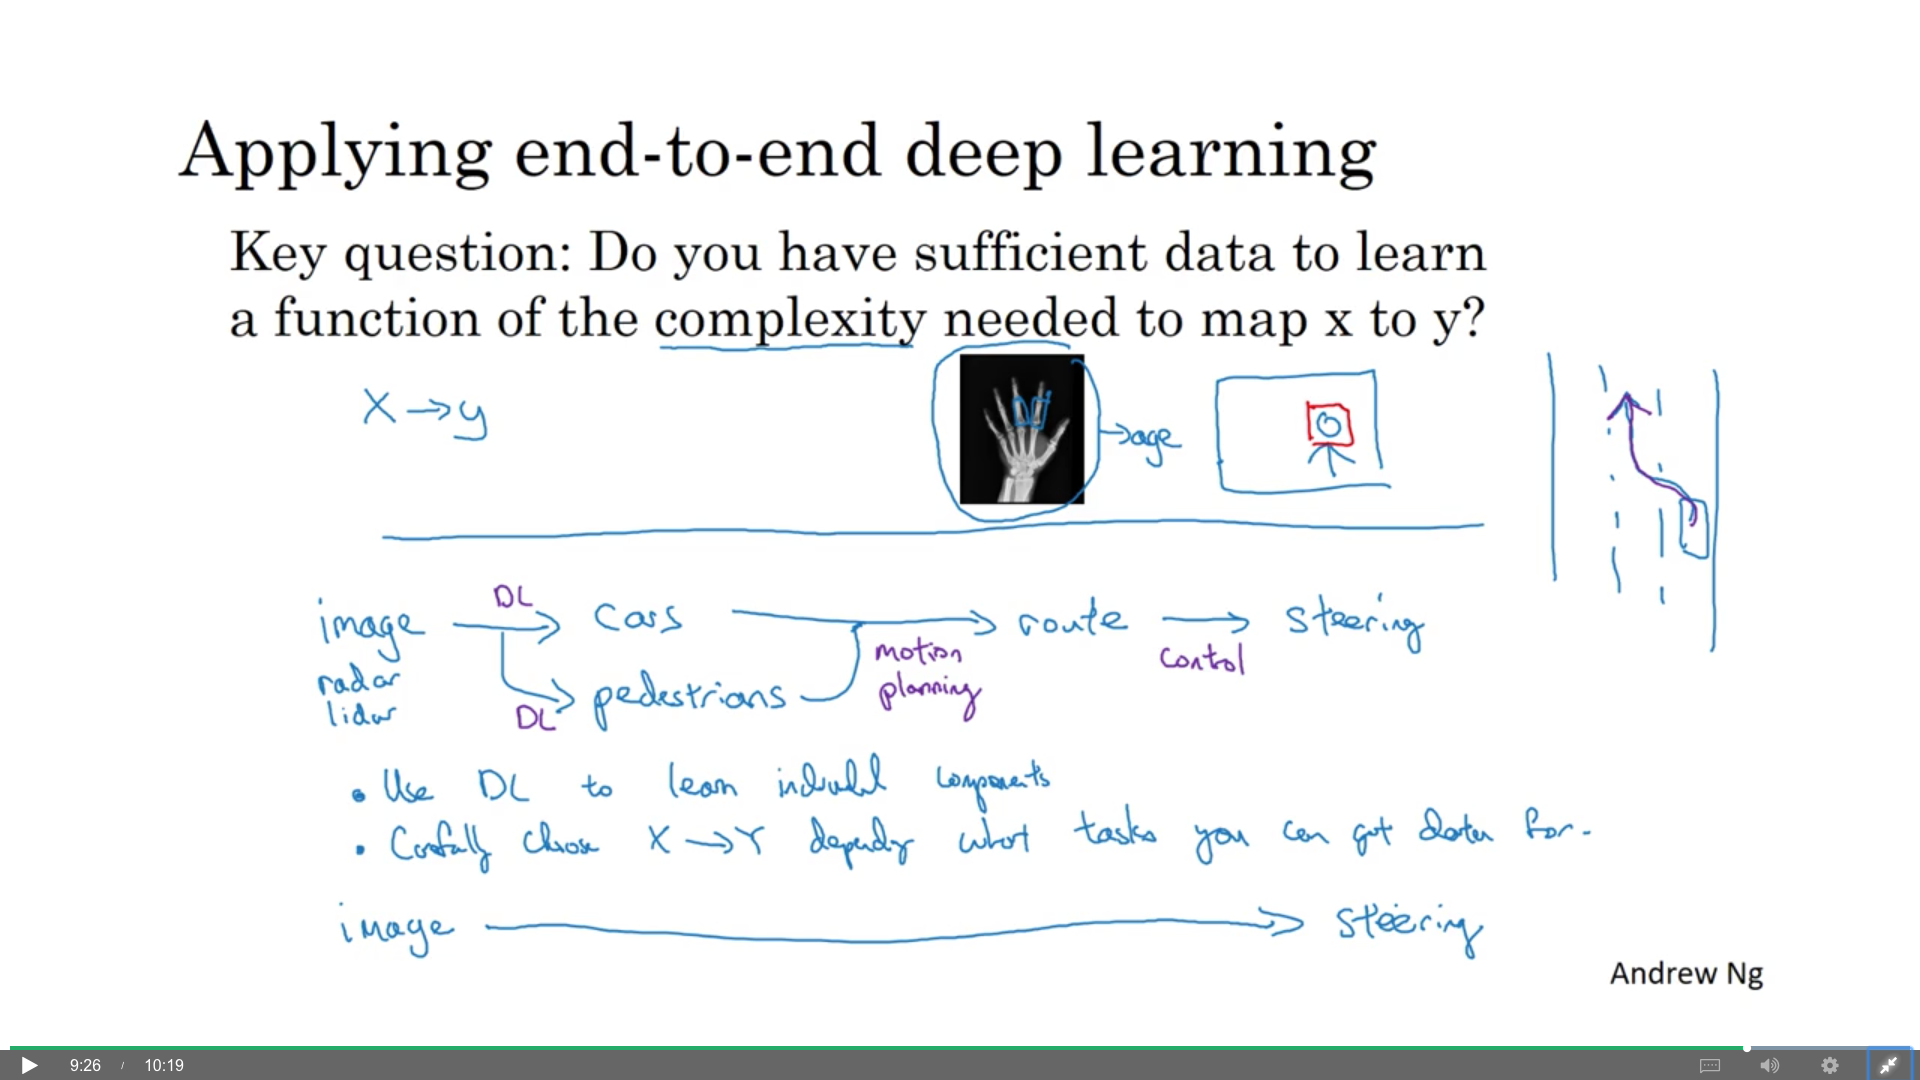 Applying end-to-end deep learning
Key question: Do you have sufficient data to learn
a function of the complexity needed to map x to y?
X → y
→ age
image DL → cars → route → steering
radar
lidar
DL → pedestrians
motion
planning
control
• Use DL to learn individual components
• Carefully choose X → Y depending what tasks you can get data for.
image → steering
Andrew Ng
9:26 / 10:19